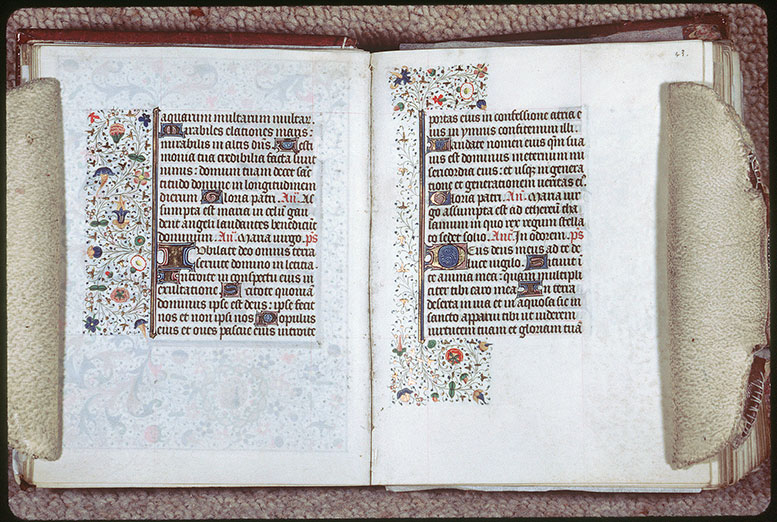 aquarum multarum mirab.
Mirabiles elationes maris:
mirabilis in altis dns. Testi
monia tua credibilia facta sunt
nimis: domum tuam decet sanc
titudo domine in longitudinem
dierum Gloria patri. An. As
sumpta est maria in celum gau
dent angeli laudantes benedicunt
dominum. An. Maria virgo. ps
Iubilate deo omnis terra
servite domino in leticia.
Introite in conspectu eius in
exultatione Scitote quoniam
dominus ipse est deus: ipse fecit
nos et non ipsi nos Populus
eius et oves pascue eius introite
63.
portas eius in confessione atria e
ius in ymnis confitemini illi.
Laudate nomen eius qm sua
vis est dominus in eternum mi
sericordia eius: et usqz in genera
tione et generationem veritas ei9.
Gloria patri. An. Maria vir
go assumpta est ad ethereum tha
lamum in quo rex regum stella
to sedet solio. An. In odorem. ps
Deus deus meus ad te de
luce vigilo. Sitivit in
te anima mea: quam multiplici
ter tibi caro mea In terra
deserta in via et in aquosa sic in
sancto apparui tibi ut viderem
virtutem tuam et gloriam tuam